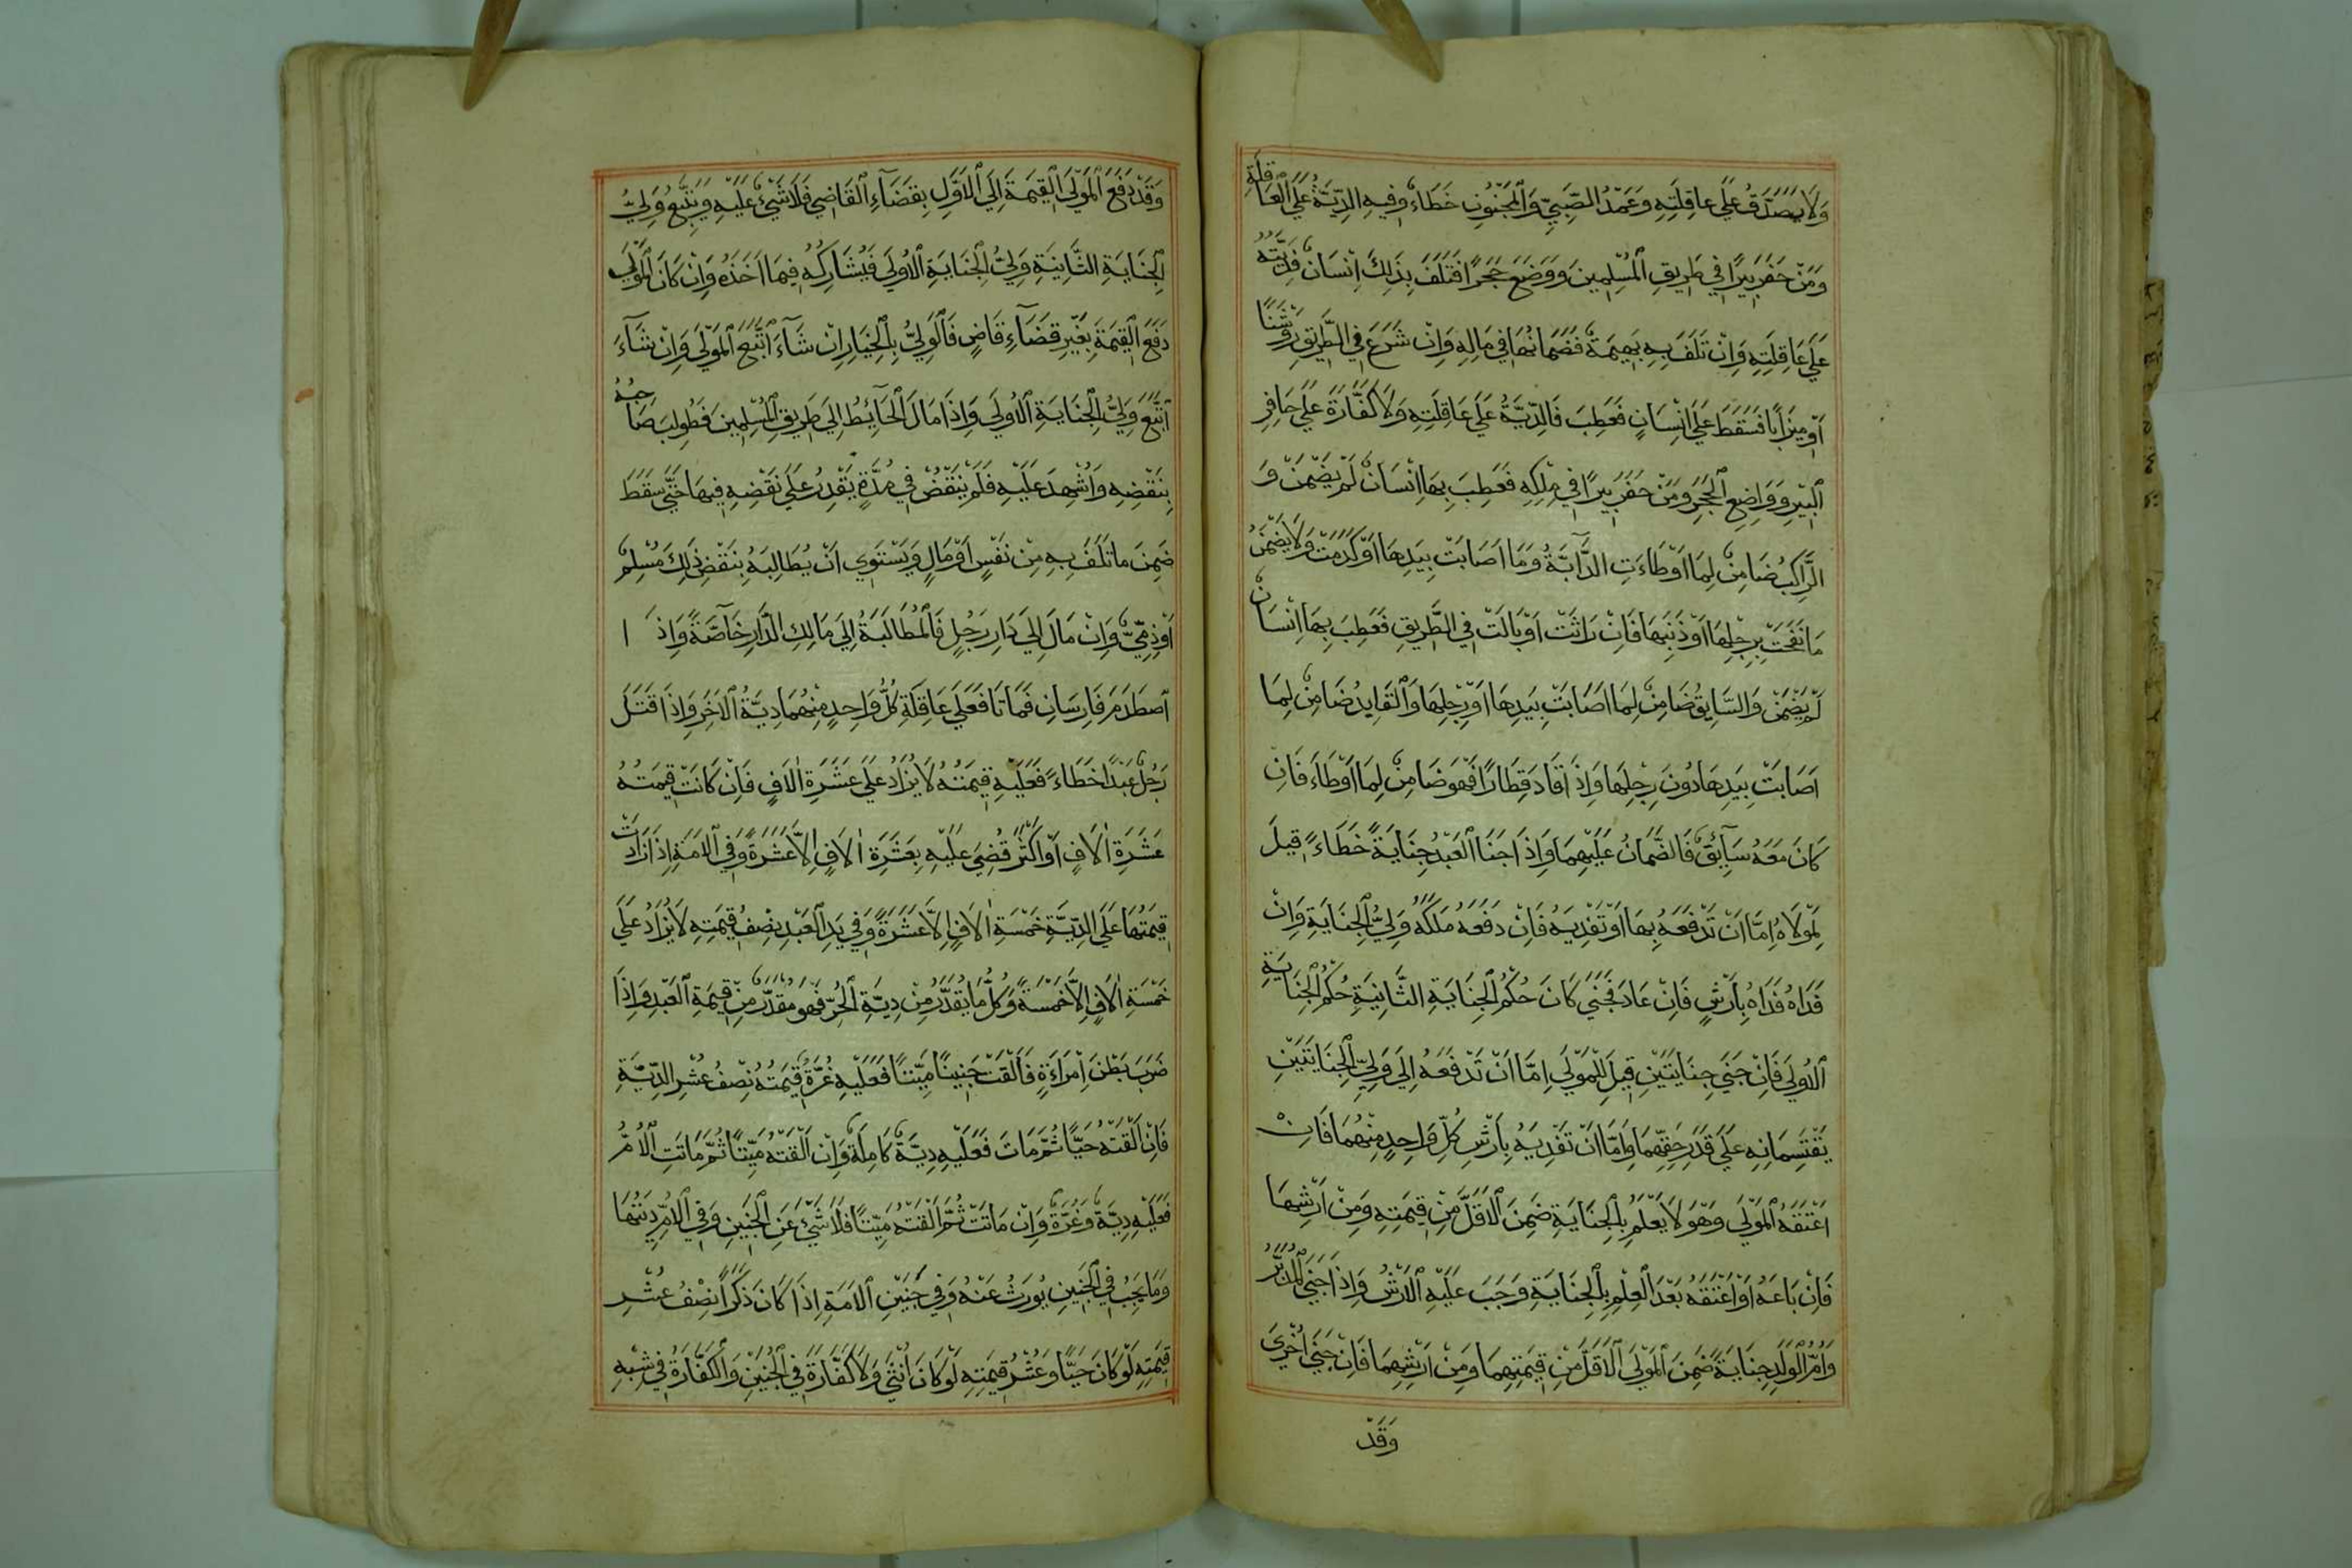 وَلَا يُصَدَّقُ عَلَي عَاقِلَتِهِ وَعَمْدُ الصَّبِيِّ وَالْمَجْنُونِ خَطَاءٌ وَفِيهِ الدِّيَةُ عَلَي الْعَاقِلَةِ
وَمَنْ حَفَرَ بِيرًا فِي طَرِيقِ الْمُسْلِمِينَ وَوَضَعَ حَجَرًا فَتَلَفَ بِذَلِكَ اِنْسَانٌ فَدِيَتُهُ
عَلَي عَاقِلَتِهِ وَاِنْ تَلَفَ بِهِ بَهِيمَةٌ فَضَمَانُهَا فِي مَالِهِ وَاِنْ شَرَعَ فِي الطَّرِيقِ رَوْشَنًا
اَوْ مِيزَابًا فَسَقَطَ عَلَي اِنْسَانٍ فَعَطِبَ فَالدِّيَةُ عَلَي عَاقِلَتِهِ وَلَا كَفَّارَةَ عَلَي حَافِرِ
الْبِيْرِ وَوَاضِعِ الْحَجَرِ وَمَنْ حَفَرَ بِيرًا فِي مِلْكِهِ فَعَطِبَ بِهَا اِنْسَانٌ لَمْ يَضْمَنْ وَ
الرَّاكِبُ ضَامِنٌ لِمَا اَوْطَاءَتِ الدَّآبَّةُ وَمَا اَصَابَتْ بِيَدِهَا اَوْ كَدَمَتْ وَلَا يَضْمَنُ
مَا نَفَحَتْ بِرِجْلِهَا اَوْ ذَنَبِهَا فَاِنْ رَاثَتْ اَوْ بَالَتْ فِي الطَّرِيقِ فَعَطِبَ بِهَا اِنْسَانٌ
لَمْ يَضْمَنْ وَالسَّايِقُ ضَامِنٌ لِمَا اَصَابَتْ بِيَدِهَا اَوْ رِجْلِهَا وَالْقَايِدُ ضَامِنٌ لِمَا
اَصَابَتْ بِيَدِهَا دُونَ رِجْلِهَا وَاِذَا قَادَ قِطَارًا فَهُوَ ضَامِنٌ لِمَا اَوْطَاءَ فَاِنْ
كَانَ مَعَهُ سَآئِقٌ فَالضَّمَانُ عَلَيْهِمَا وَاِذَا جَنَا الْعَبْدُ جِنَايَةً خَطَاءً قِيلَ
لِمَوْلَاهُ اِمَّا اَنْ تَدْفَعَهُ بِهَا اَوْ تَفْدِيَهُ فَاِنْ دَفَعَهُ مَلَكَهُ وَلِيُّ الْجِنَايَةِ وَاِنْ
فَدَاهُ فَدَاهُ بِاَرْشٍ فَاِنْ عَادَ فَجَنَي كَانَ حُكْمُ الْجِنَايَةِ الثَّانِيَةِ حُكْمُ الْجِنَايَةِ
الْاُولَي فَاِنْ جَنَي جِنَايَتَيْنِ قِيلَ لِلْمَوْلَي اِمَّا اَنْ تَدْفَعَهُ اِلَي وَلِيِّ الْجِنَايَتَيْنِ
يَقْتَسِمَانِهِ عَلَي قَدَرِ حَقِّهِمَا وَاِمَّا اَنْ تَفْدِيَهُ بِاَرْشِ كُلِّ وَاحِدٍ مِنْهُمَا فَاِنْ
اَعْتَقَهُ الْمَوْلَي وَهُوَ لَا يَعْلَمُ بِالْجِنَايَةِ ضَمِنَ الْاَقَلَّ مِنْ قِيمَتِهِ وَمِنْ اَرْشِهَا
فَاِنْ بَاعَهُ اَوْ اَعْتَقَهُ بَعْدَ الْعِلْمِ بِالْجِنَايَةِ وَجَبَ عَلَيْهِ الْاَرْشُ وَاِذَا جَنَي الْمُدَبَّرُ
وَاُمُّ الْوَلَدِ جِنَايَةً ضَمِنَ الْمَوْلَي الْاَقَلَّ مِنْ قِيمَتِهِمَا وَمِنْ اَرْشِهِمَا فَاِنْ جَنَي اُخْرَي
وَقَدْ
وَقَدْ دَفَعَ الْمَوْلَي الْقِيمَةَ اِلَي الْاَوَّلِ بِقَضَآءِ الْقَاضِي فَلَا شَيْئَ عَلَيْهِ وَيَتْبَعُ وَلِيُّ
الْجِنَايَةِ الثَّانِيَةِ وَلِيُّ الْجِنَايَةِ الْاُولَي فَيُشَارِكُهُ فِيمَا اَخَذَهُ وَاِنْ كَانَ الْمَوْلَي
دَفَعَ الْقِيمَةَ بِغَيْرِ قَضَآءِ قَاضٍ فَالْوَلِيُّ بِالْخِيَارِ اِنْ شَآءَ اتَّبَعَ الْمَوْلَي وَاِنْ شَآءَ
اتَّبَعَ وَلِيُّ الْجِنَايَةِ الْاُولَي وَاِذَا مَالَ الْحَآئِطُ اِلَي طَرِيقِ الْمُسْلِمِينَ فَطُولِبَ صَاحِبُهُ
بِنَقْضِهِ وَاُشْهِدَ عَلَيْهِ فَلَمْ يَنْقُضْ فِي مُدَّةٍ يَقْدِرُ عَلَي نَقْضِهِ فِيهَا حَتَّي سَقَطَ
ضَمِنَ مَا تَلَفَ بِهِ مِنْ نَفْسٍ اَوْ مَالٍ وَيَسْتَوِي اَنْ يُطَالِبَهُ بِنَقْضِ ذَلِكَ مُسْلِمٌ
اَوْ ذِمِّيٌّ وَاِنْ مَالَ اِلَي دَارِ رَجُلٍ فَالْمُطَالَبَةُ اِلَي مَالِكِ الدَّارِ خَآصَّةً وَاِذَا
اصْطَدَمَ فَارِسَانِ فَمَاتَا فَعَلَي عَاقِلَةِ كُلِّ وَاحِدٍ مِنْهُمَا دِيَةُ الْاَخَرِ وَاِذَا قَتَلَ
رَجُلٌ عَبْدًا خَطَاءً فَعَلَيْهِ قِيمَتُهُ لَا يُزَادُ عَلَي عَشَرَةِ اٰلَافٍ فَاِنْ كَانَتْ قِيمَتُهُ
عَشَرَةَ اٰلَافٍ اَوْ اَكْثَرَ قُضِيَ عَلَيْهِ بِعَشَرَةِ اٰلَافٍ اِلَّا عَشَرَةً وَفِي الْاَمَةِ اِذَا زَادَتْ
قِيمَتُهَا عَلَي الدِّيَةِ خَمْسَةِ اٰلَافٍ اِلَّا عَشَرَةً وَفِي يَدِ الْعَبْدِ نِصْفُ قِيمَتِهِ لَا يُزَادُ عَلَي
خَمْسَةِ اٰلَافٍ اِلَّا خَمْسَةً وَكُلُّ مَا يُقَدَّرُ مِنْ دِيَةِ الْحُرِّ فَهُوَ مُقَدَّرٌ مِنْ قِيمَةِ الْعَبْدِ وَاِذَا
ضَرَبَ بَطْنَ اِمْرَاَةٍ فَاَلْقَتْ جَنِينًا مَيِّتًا فَعَلَيْهِ غُرَّةٌ قِيمَتُهُ نِصْفُ عُشْرِ الدِّيَةِ
فَاِنْ اَلْقَتْهُ حَيًّا ثُمَّ مَاتَ فَعَلَيْهِ دِيَةٌ كَامِلَةٌ وَاِنْ اَلْقَتْهُ مَيِّتًا ثُمَّ مَاتَتِ الْاُمُّ
فَعَلَيْهِ دِيَةٌ وَغُرَّةٌ وَاِنْ مَاتَتْ ثُمَّ اَلْقَتْهُ مَيِّتًا فَلَا شَيْئَ عَنِ الْجَنِينِ وَفِي الْاُمِّ دِيَتُهَا
وَمَا يَجِبُ فِي الْجَنِينِ يُورَثُ عَنْهُ وَفِي جَنِيْنِ الْاَمَةِ اِذَا كَانَ ذَكَرًا نِصْفُ عُشْرِ
قِيمَتِهِ لَوْ كَانَ حَيًّا وَعُشْرُ قِيمَتِهِ لَوْ كَانَ اُنْثَي وَلَا كَفَّارَةَ فِي الْجَنِيْنِ وَالْكَفَّارَةُ فِي شِبْهِ